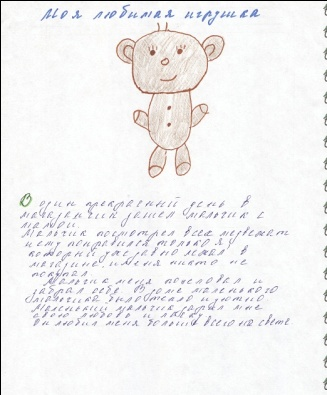 Моя любимая игрушка
В один прекрасный день в
магазинчик зашел мальчик с
мамой.
Мальчик посмотрел всех медвежат
и ему понравился только я
который уже давно лежал в
магазине и меня никто не
покупал.
Мальчик меня поцеловал и
забрал себе. В доме маленького
мальчика было тепло и уютно
Маленький мальчик дарил мне
свою любовь и ласку.
Он любил меня больше всего на свете